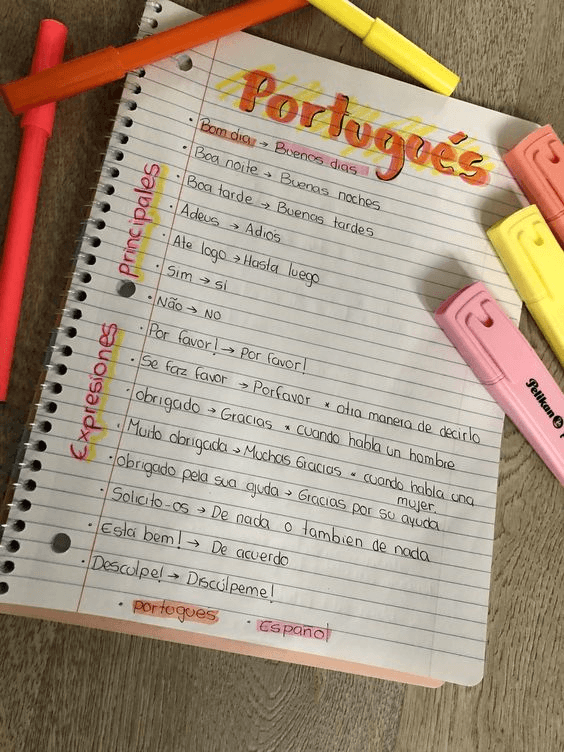 Portugués
Expresiones Principales
• Bom dia → Buenos dias
• Boa noite → Buenas noches
• Boa tarde → Buenas tardes
• Adeus → Adiós
• Ate logo → Hasta luego
• Sim → si
• Não → No
• Por favor! → Por favor!
• Se faz favor → Porfavor * otra manera de decirlo
• obrigado → Gracias * cuando habla un hombre
• Muito obrigada → Muchas Gracias * cuando habla una
mujer.
• obrigado pela sua ajuda → Gracias por su ayuda
• Solicito-os → De nada o tambien de nada
• Está bem! → De acuerdo
• Desculpe! → Discúlpeme!
• portugues • Español
Pelikan